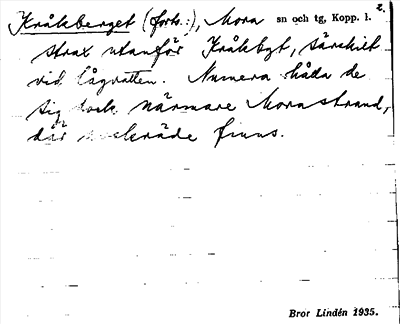 Kråkberget (forts.:), Mora sn och tg, Kopp. l. 2.
strax utanför Kråkbgt, särskilt
vid lågvatten. Numera hålla de
sig dock närmare Morastrand,
där finns.
Bror Lindén 1935.